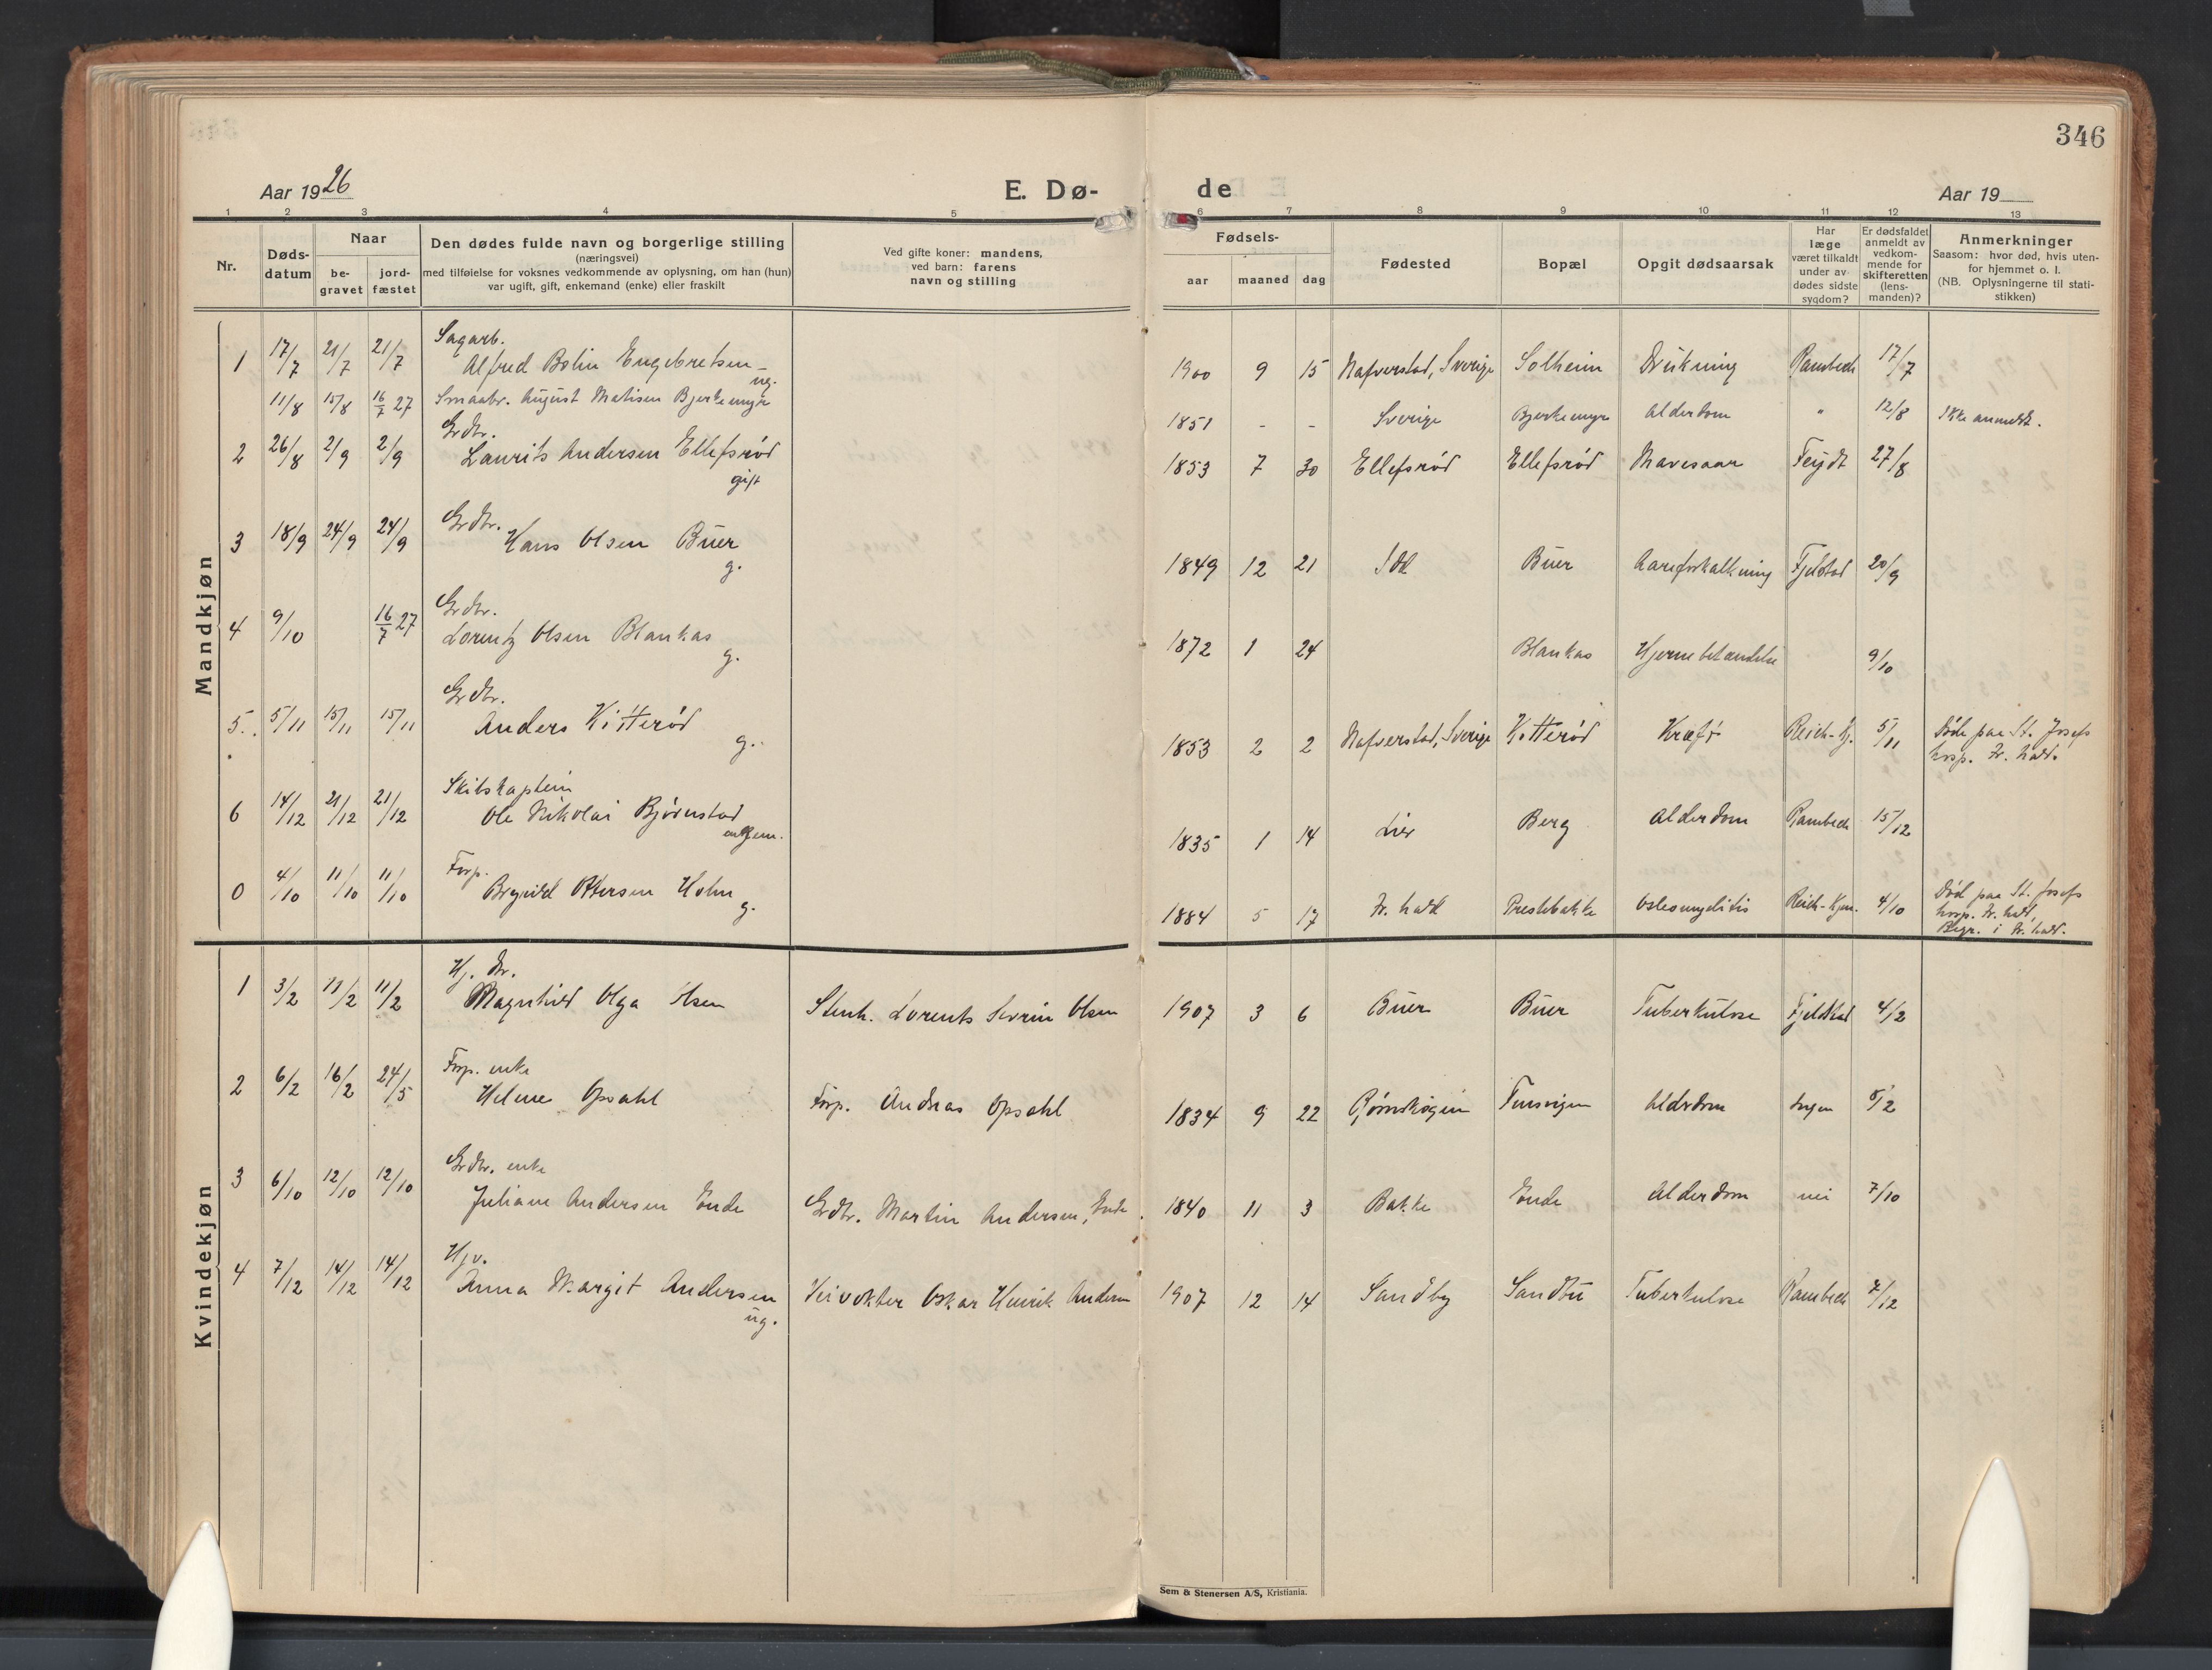 346
Aar 1926
E. Dø-
de
Aar 19
1 2 3 4 5 6 7 8 9 10 11 12 13
Nr.
Døds-
datum
Naar
be-
gravet
jord-
fæstet
Den dødes fulde navn og borgerlige stilling
(næringsvei)
med tilføielse for voksnes vedkommende av oplysning, om han (hun)
var ugift, gift, enkemand (enke) eller fraskilt
Ved gifte koner: mandens,
ved barn: farens
navn og stilling
Fødsels-
aar maaned dag
Fødested
Bopæl
Opgit dødsaarsak
Har
læge
været tilkaldt
under av-
dødes sidste
sygdom?
Er dødsfaldet
anmeldt av
vedkom-
mende for
skifteretten
(lens-
manden)?
Anmerkninger
Saasom: hvor død, hvis uten-
for hjemmet o. l.
(NB. Oplysningerne til stati-
stikken)
Mandkjøn
Sagarb.
1 17/7 21/7 21/7 Alfred Bolin Engebretsen 1900 9 15 Nafverstad, Sverige Solheim Drukning Rambech 17/7
ug.
11/8 15/8 16/7 27 Smaabr. August Matisen Bjerkemyr 1851 - - Sverige Bjerkemyr Alderdom " 12/8 Ikke anmeldt.
Grdbr.
2 26/8 2/9 2/9 Laurits Andersen Ellefsrød 1853 7 30 Ellefsrød Ellefsrød Mavesaar Feydt 27/8
gift
Grdbr.
3 18/9 24/9 24/9 Hans Olsen Buer 1849 12 21 Idd Buer Aareforkalkning Fjeldstad 20/9
g.
Grdbr.
4 9/10 16/7 27 Lorentz Olsen Blankas 1872 1 24 Blankas Hjernebetændelse 9/10
g.
Grdbr.
5. 5/11 15/11 15/11 Anders Kitterød 1853 2 2 Nafverstad, Sverige Kitterød Kræft Reich-Kj. 5/11 Døde paa St. Josefs
g. hosp. Fr. hald.
Skibskaptein
6 14/12 21/12 21/12 Ole Nikolai Bjørnstad 1835 1 14 Lier Berg Alderdom Rambech 15/12
Forp.
0 4/10 11/10 11/10 Holm 1884 5 17 Fr. hald Prestebakke Osteomyelitis Reich-Kjen. 4/10 Død paa St. Josefs
g. hosp. Fr. hald,
Begr. i Fr. hald.
Kvindekjøn
Hj. dtr.
1 3/2 11/2 11/2 Magnhild Olga Olsen Stenh. Lorents Severin Olsen 1907 3 6 Buer Buer Tuberkulose Fjeldstad 4/2
Forp. enke
2 6/2 16/2 24/5 Helene Opsahl Forp. Andreas Opsahl 1834 9 22 Alderdom Ingen 8/2
Grdbr. enke
3 6/10 12/10 12/10 Juliane Andersen Ende Grdbr. Martin Andersen, Ende. 1840 11 3 Bakke Ende Alderdom nei 7/10
Hjv.
4 7/12 14/12 14/12 Anna Margit Andersen Veivokter Oskar Henrik Andersen 1907 12 14 Sandby Sandbu Tuberkulose Rambech 7/12
ug.
Sem & Stenersen A/S, Kristiania.